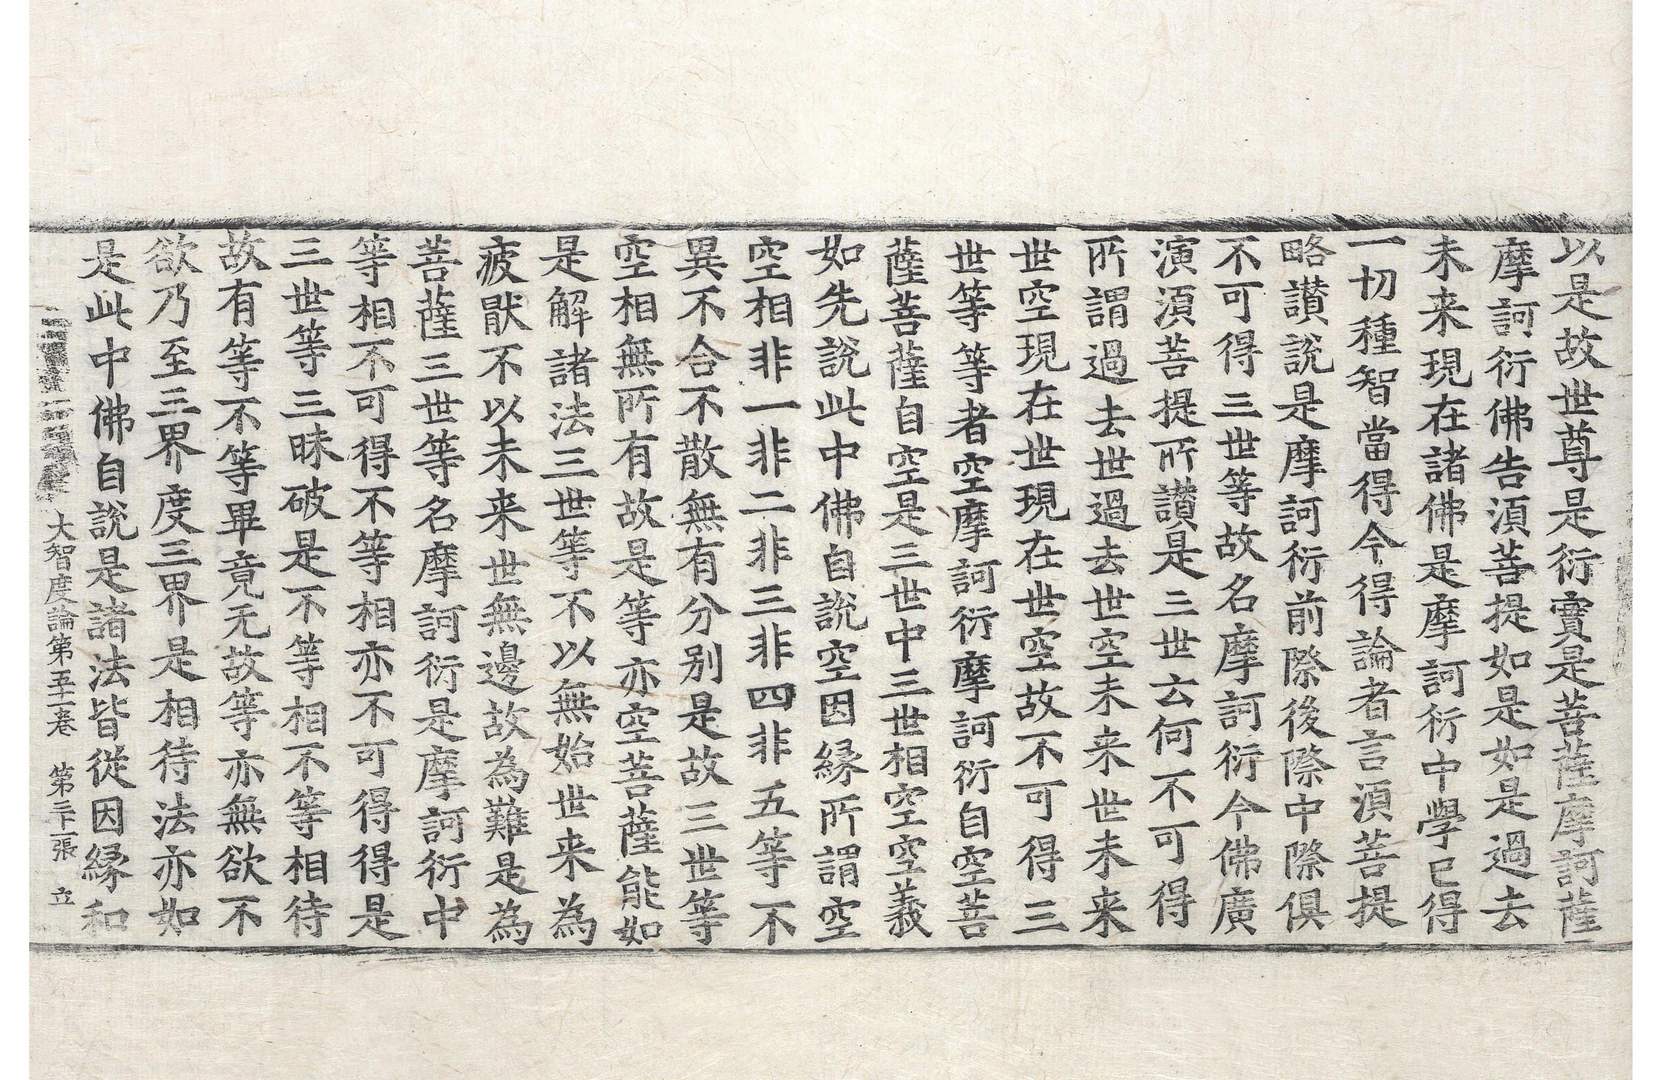 以是故世尊是衍實是菩薩摩訶薩
摩訶衍佛告湏菩提如是如是過去
未来現在諸佛是摩訶衍中學已得
一切種智當得今得論者言湏菩提
略讃説是摩訶衍前際後際中際俱
不可得三世等故名摩訶衍今佛廣
演湏菩提所讃是三世云何不可得
所謂過去世過去世空未来世未来
世空現在世現在世空故不可得三
世等等者空摩訶衍摩訶衍自空菩
薩菩薩自空是三世中三世相空空義
如先説此中佛自説空因縁所謂空
空相非一非二非三非四非五等不
異不合不散無有分别是故三世等
空相無所有故是等亦空菩薩能如
是解諸法三世等不以無始世来為
疲猒不以未来世無邊故為難是為
菩薩三世等名摩訶衍是摩訶衍中
等相不可得不等相亦不可得得是
三世等三昧破是不等相不等相待
故有等不等畢竟无故等亦無欲不
欲乃至三界度三界是相待法亦如
是此中佛自說是諸法皆從因縁和
大智度論第五十一卷 第二十一張 立